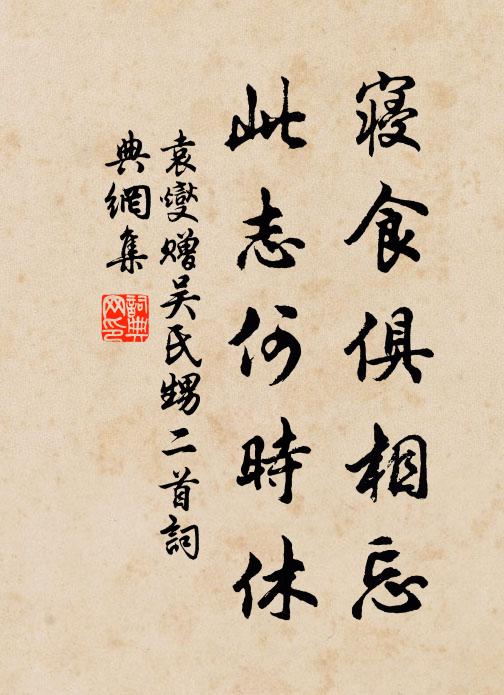 寢食俱相忘
此志何時休
袁燮贈吴氏甥二首詞
典網集
詞典网印